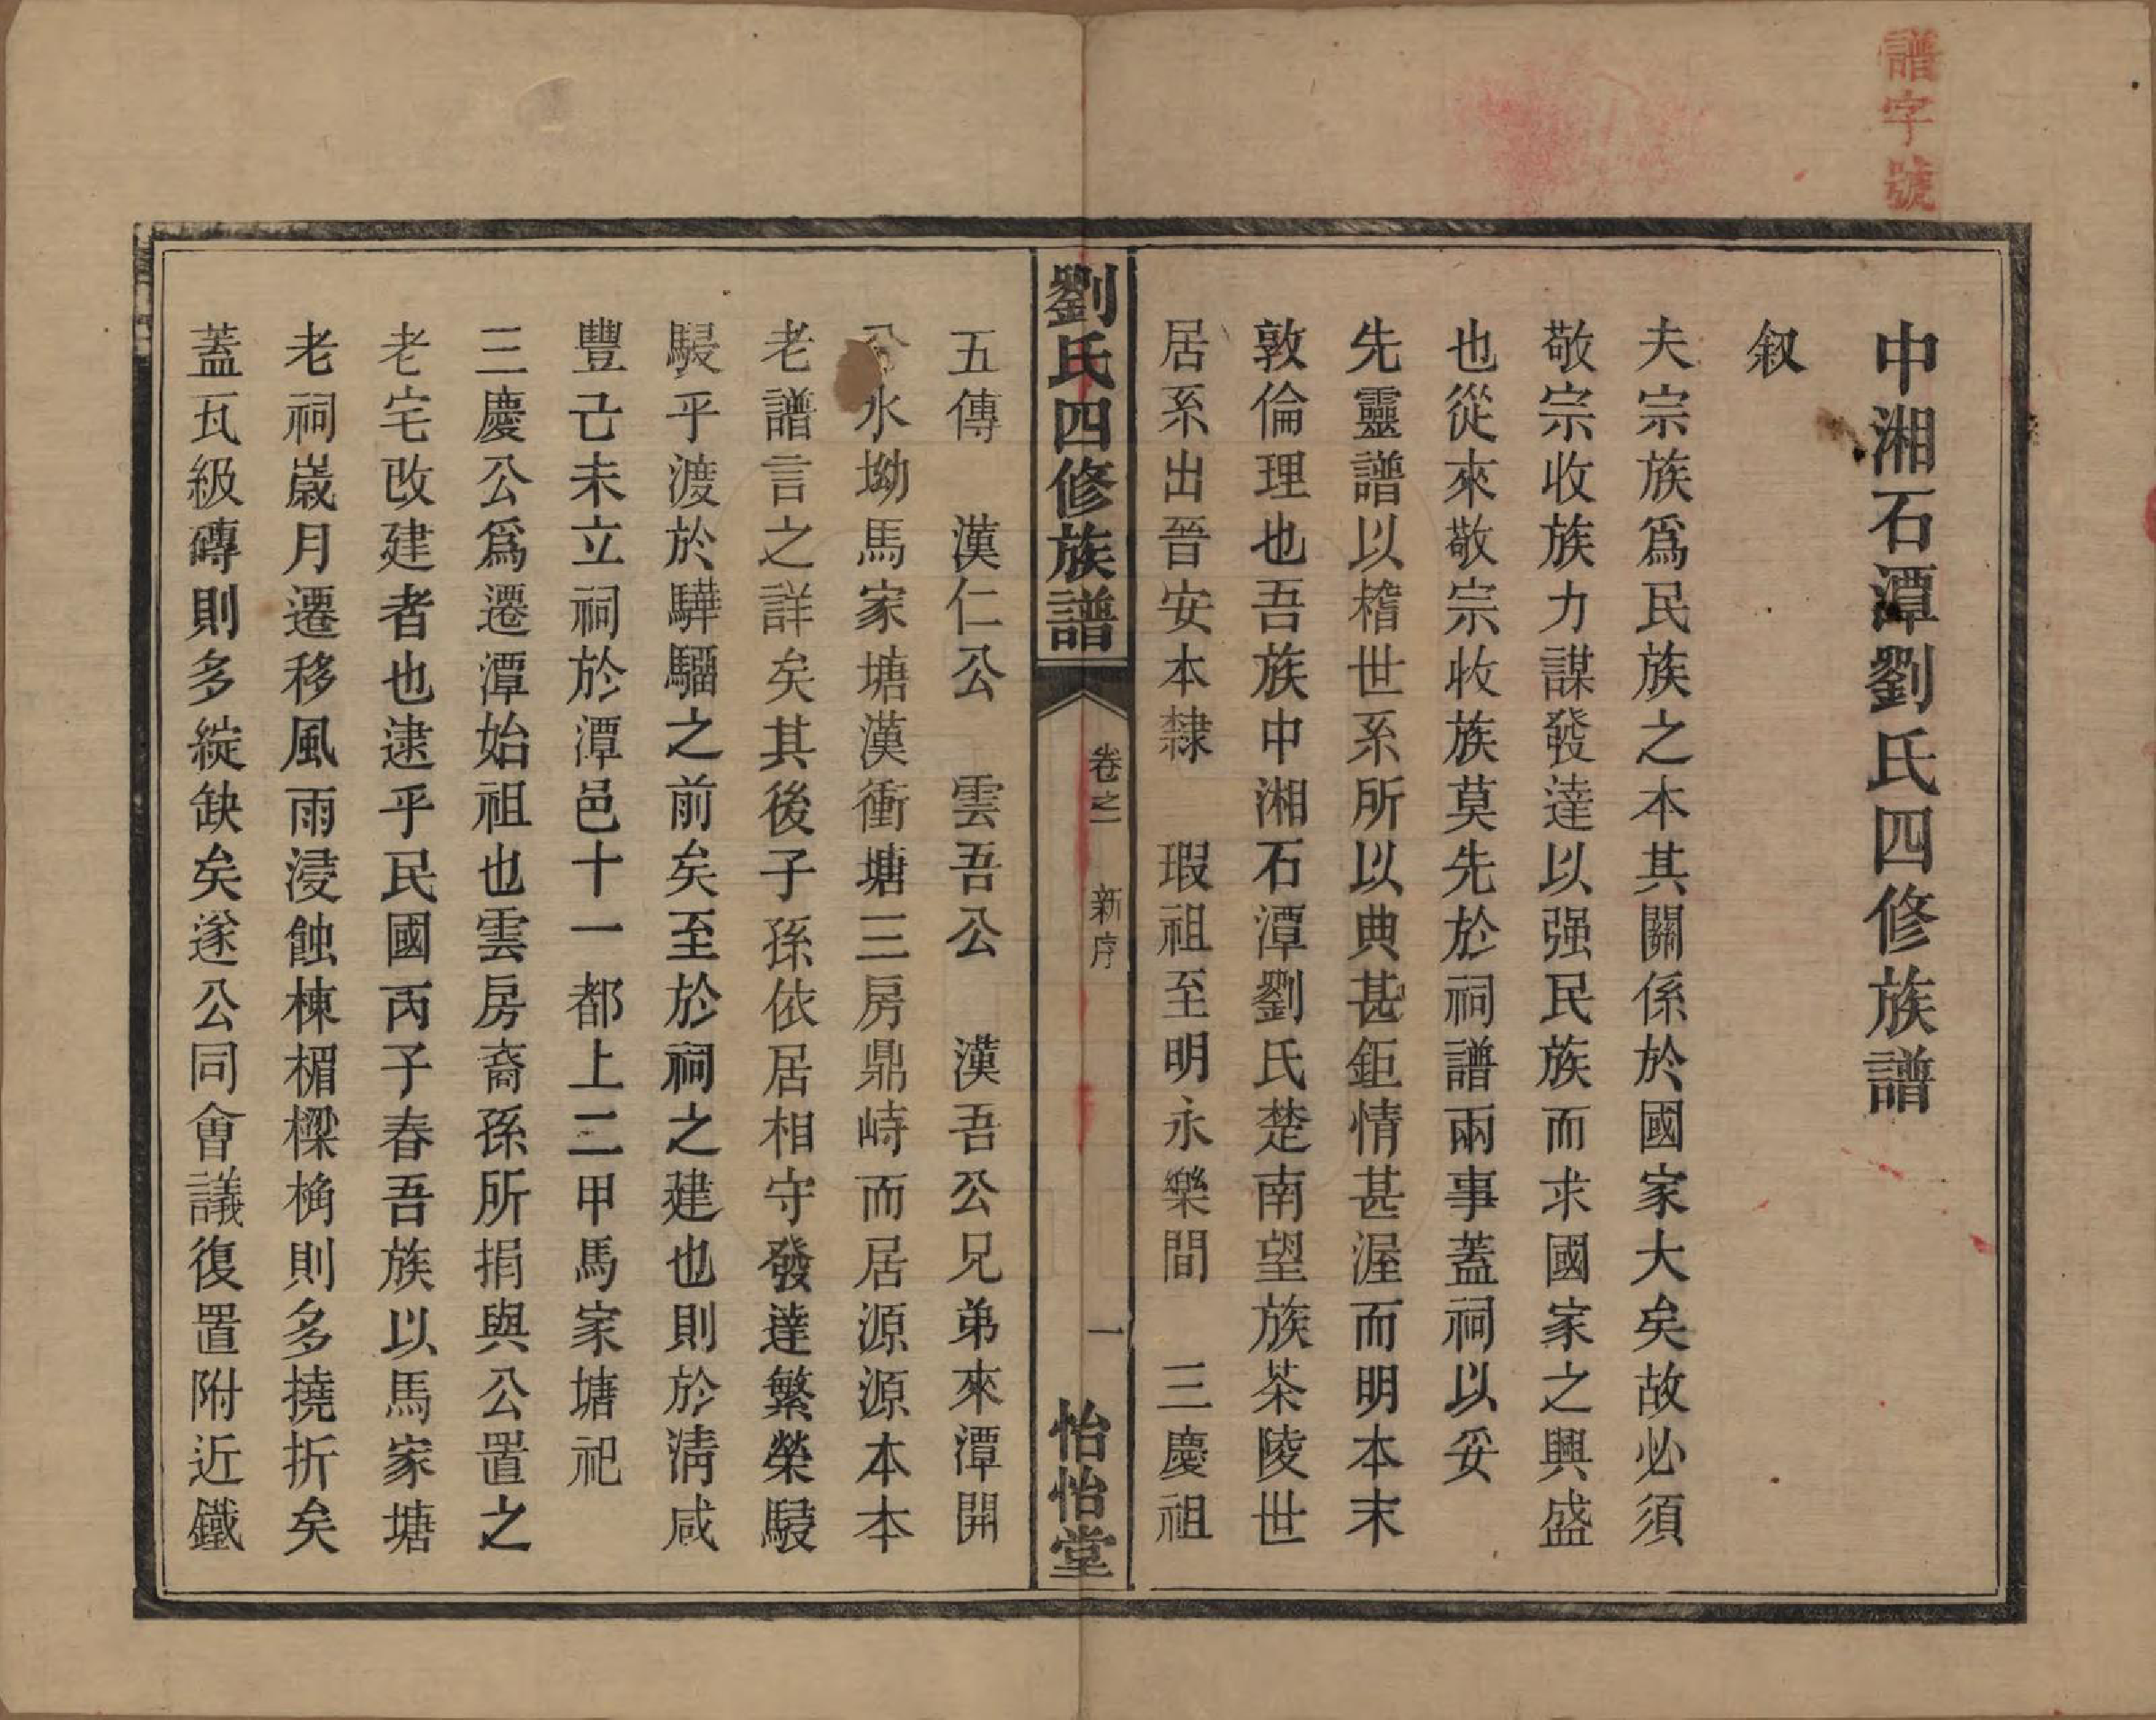 譜字號
中湘石潭劉氏四修族譜
叙
夫宗族爲民族之本其關係於國家大矣故必須
敬宗收族力謀發達以强民族而求國家之興盛
也從來敬宗收族莫先於祠譜兩事蓋祠以妥
先靈譜以稽世系所以典甚鉅情甚渥而明本末
敦倫理也吾族中湘石潭劉氏楚南望族茶陵世
居系出晉安本隸　瑕祖至明永樂間　三慶祖
劉氏四修族譜　卷之一　新序　一　怡怡堂
五傳　漢仁公　雲吾公　漢吾公兄弟來潭開
水坳馬家塘漢衝塘三房鼎峙而居源源本本
老譜言之詳矣其後子孫依居相守發達繁榮駸
駸乎渡於驊騮之前矣至於祠之建也則於清咸
豐己未立祠於潭邑十一都上二甲馬家塘祀
三慶公爲遷潭始祖也雲房裔孫所捐與公置之
老宅改建者也逮乎民國丙子春吾族以馬家塘
老祠歲月遷移風雨浸蝕棟楣樑桷則多撓折矣
蓋瓦級磚則多綻缺矣遂公同會議復置附近鐵